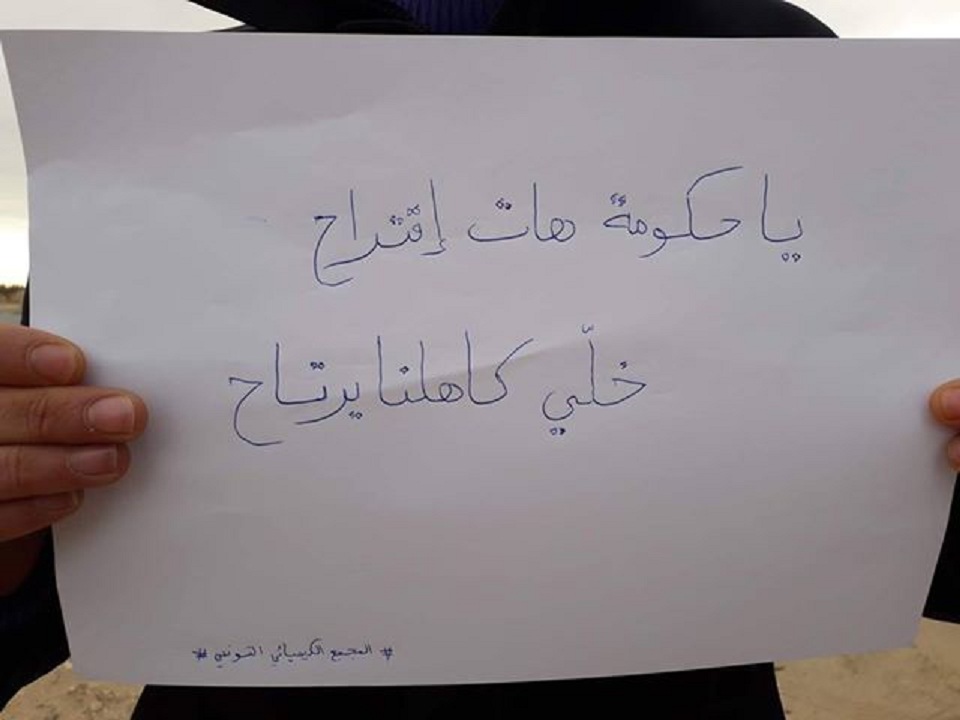 يا حكومة هات إقتراح
خلّي كاهلنا يرتاح
# المجمع الكيميائي التونسي #